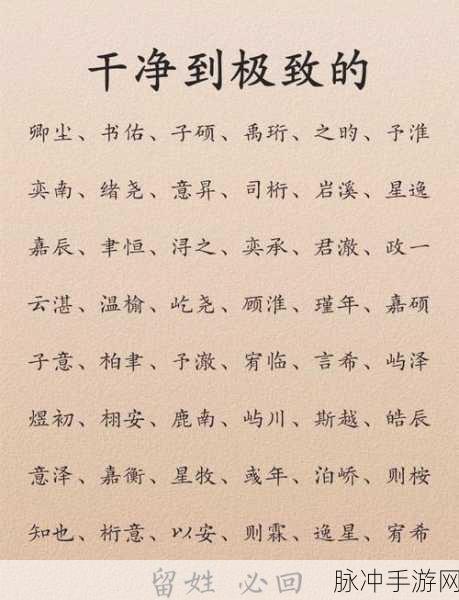 干净到极致的
卿尘、书佑、子硕、禹珩、之昀、予淮
奕南、绪尧、意昇、司桁、岩溪、星逸
嘉辰、聿恒、浔之、奕承、君澈、政一
云湛、温榆、屹尧、顾淮、瑾年、嘉硕
子意、柏聿、予澈、宥临、言希、屿泽
煜初、栩安、鹿南、屿川、斯越、皓辰
意泽、嘉衡、星牧、彧年、泊峤、则桉
知也、桁意、以安、则霖、逸星、宥希
留姓 必回
脉冲手游网